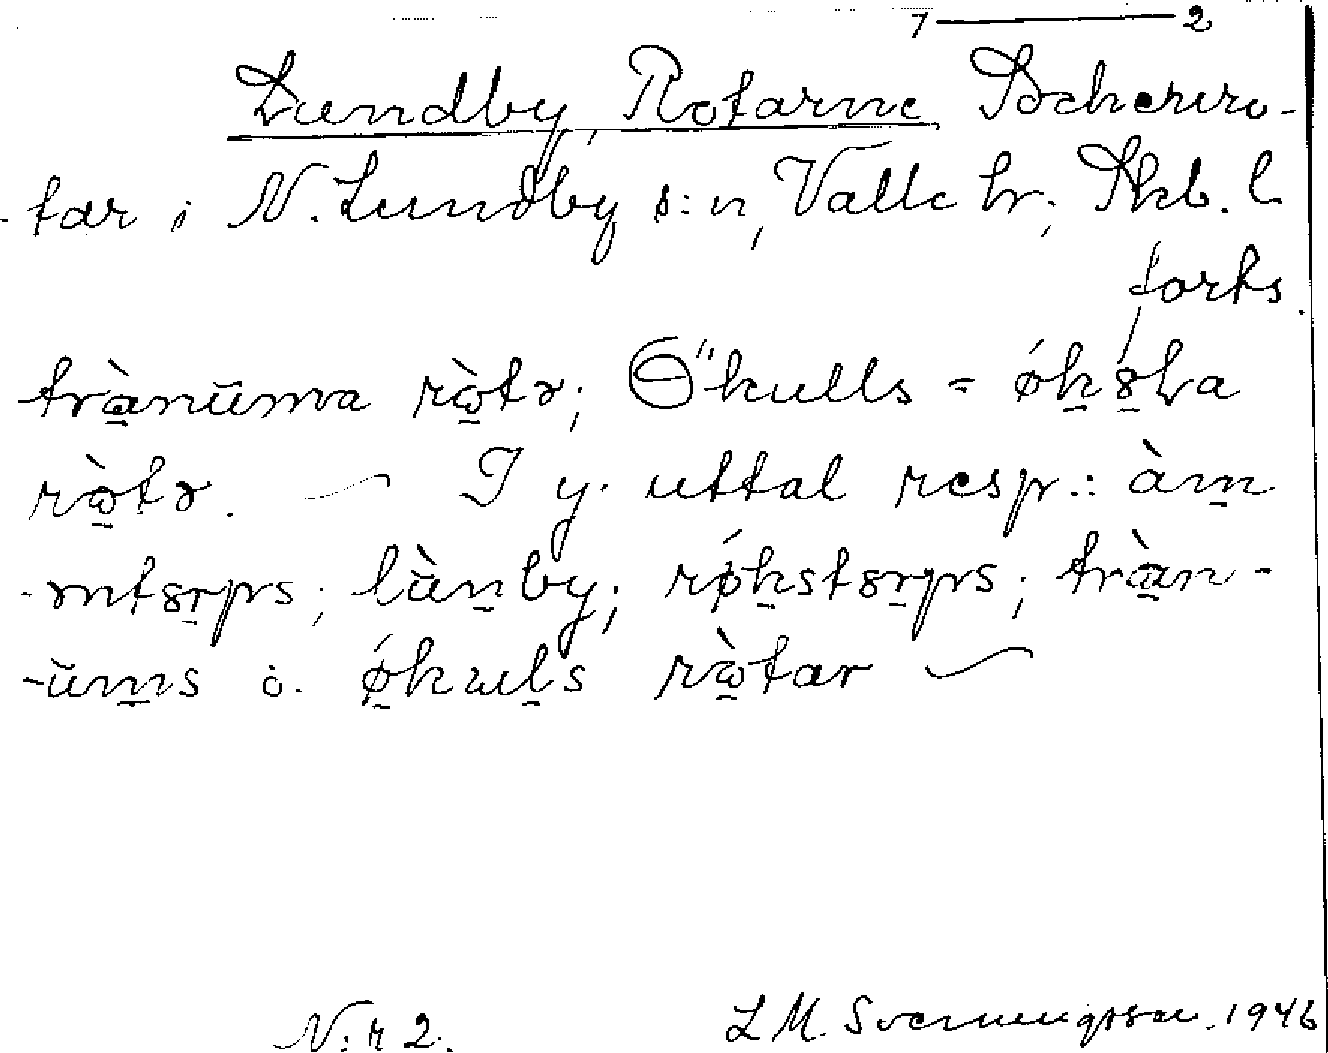 7 — 2
Lundby, Rotarne, Socknero-
-tar i N. Lundby s:n, Valle hr, Skb. l
forts.
trànŭma ròtə; Ö'kulls = ǿkȣla
ròtə. — I y. uttal resp.: àm
-mtȣrps; lànby; rǿkstȣrps; tràn-
-ŭms o. ǿkuls ròtar —
N:r 2. L M. Svenungsson. 1946